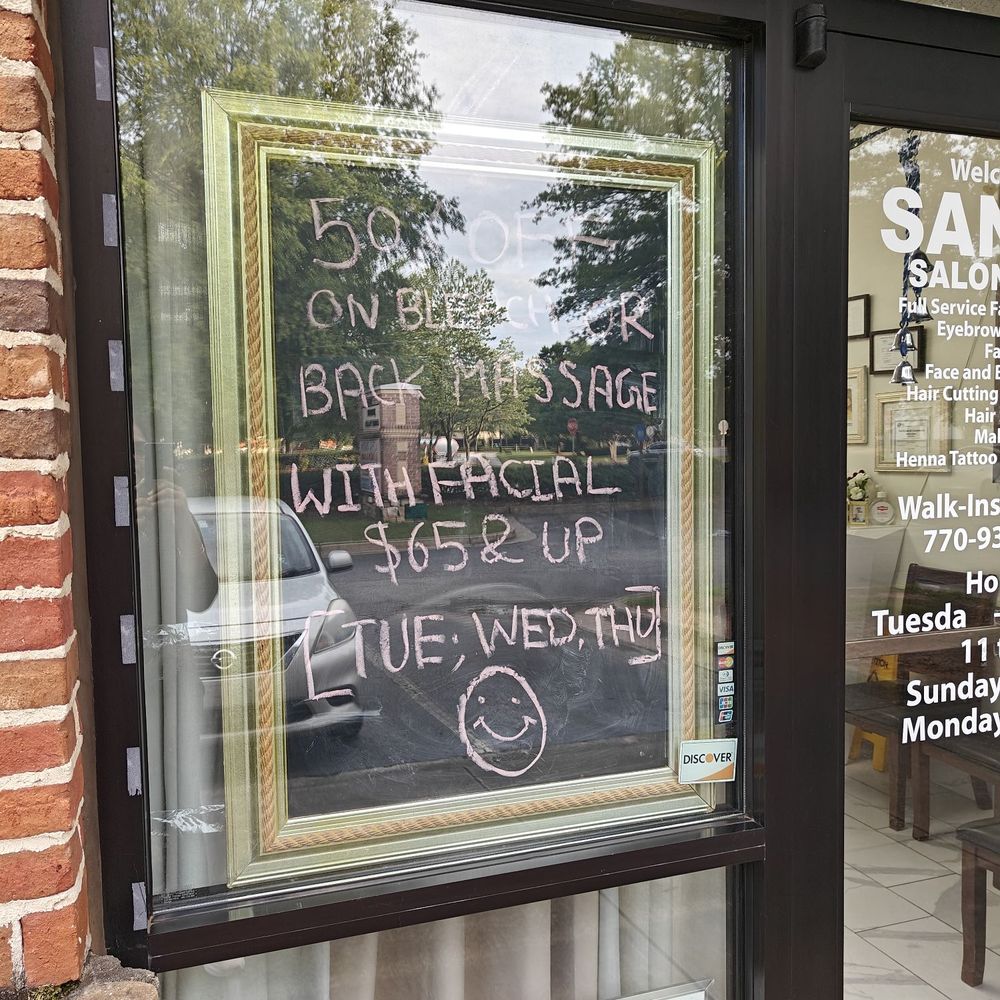 50% OFF
ON BLEACH OR
BACK MASSAGE
WITH FACIAL
$65 & UP
[TUE; WED, THU]
DISCOVER
VISA
DISCOVER
Welc
SAN
SALON
Full Service F
Eyebrow
Fa
Face and B
Hair Cutting
Hair
Mak
Henna Tattoo
Walk-Ins
770-93
Ho
Tuesda
11 t
Sunday
Monday